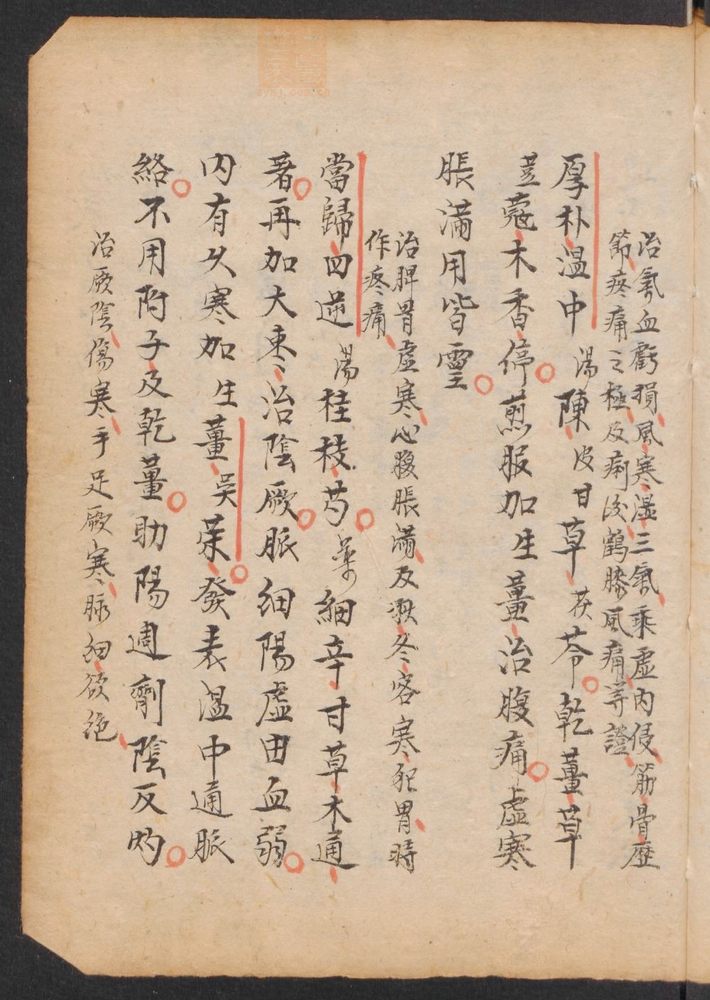 治氣血虧損風寒濕三氣乘虛內侵筋骨歷
節疼痛之極及痢後鶴膝風痛等證
厚朴溫中湯陳皮甘草茯苓乾薑草
荳蔻木香停煎服加生薑治腹痛虛寒
脹滿用皆靈
治脾胃虛寒心腹脹滿及秋冬客寒犯胃時
作疼痛
當歸四逆湯桂枝芍藥細辛甘草木通
著再加大棗治陰厥脈細陽虛由血弱
內有久寒加生薑吳茱發表溫中通脈
絡不用附子及乾薑助陽過劑陰反灼
治厥陰傷寒手足厥寒脉細欲絕